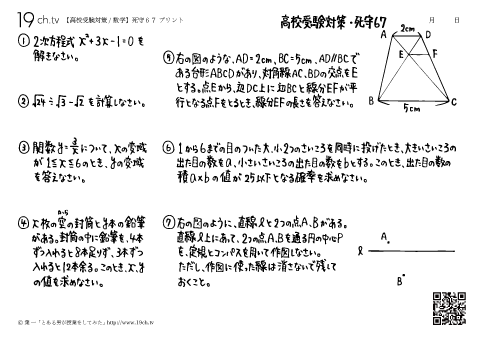 19ch.tv 【高校受験対策/数学】死守67 プリント
高校受験対策・死守67
月 日
① 2次方程式 x²+3x-1=0 を
解きなさい。
② √24÷√3-√2 を計算しなさい。
③ 関数 y=3/x について、xの変域
が 1≦x≦6 のとき、yの変域
を答えなさい。
④ x枚の空の封筒とy本の鉛筆
がある。封筒の中に鉛筆を、4本
ずつ入れると8本足りず、3本ずつ
入れると12本余る。このとき、x、y
の値を求めなさい。
⑤ 右の図のような、AD=2cm、BC=5cm、AD//BCで
ある台形ABCDがあり、対角線AC、BDの交点をE
とする。点Eから、辺DC上に辺BCと線分EFが平
行となる点Fをとるとき、線分EFの長さを答えなさい。
A 2cm D
E F
B 5cm C
⑥ 1から6までの目のついた大、小2つのさいころを同時に投げたとき、大きいさいころの
出た目の数をa、小さいさいころの出た目の数をbとする。このとき、出た目の数の
積a×bの値が25以下となる確率を求めなさい。
⑦ 右の図のように、直線ℓと2つの点A、Bがある。
直線ℓ上にあって、2つの点A、Bを通る円の中心P
を、定規とコンパスを用いて作図しなさい。
ただし、作図に使った線は消さないで残して
おくこと。
A
ℓ
B
© 葉一「とある男が授業をしてみた」http://www.19ch.tv